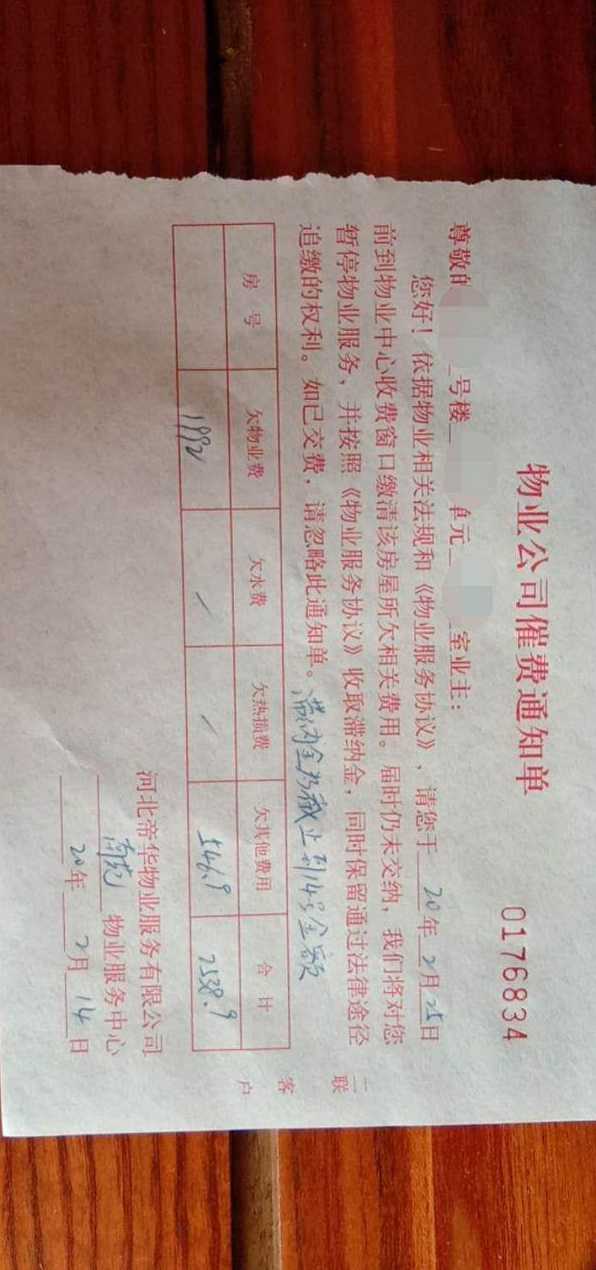 物业公司催费通知单
0176834
尊敬的 号楼 单元 室业主：
您好！依据物业相关法规和《物业服务协议》，请您于 20年 2月 25日
前到物业中心收费窗口缴清该房屋所欠相关费用。届时仍未交纳，我们将对您
暂停物业服务，并按照《物业服务协议》收取滞纳金，同时保留通过法律途径
追缴的权利。如已交费，请忽略此通知单。
滞纳金为截止到14号金额
房号 欠物业费 欠水费 欠热损费 欠其他费用 合计
1992 / / 546.9 2538.9
二联
客户
河北帝华物业服务有限公司
物业服务中心
20年 2月 14日